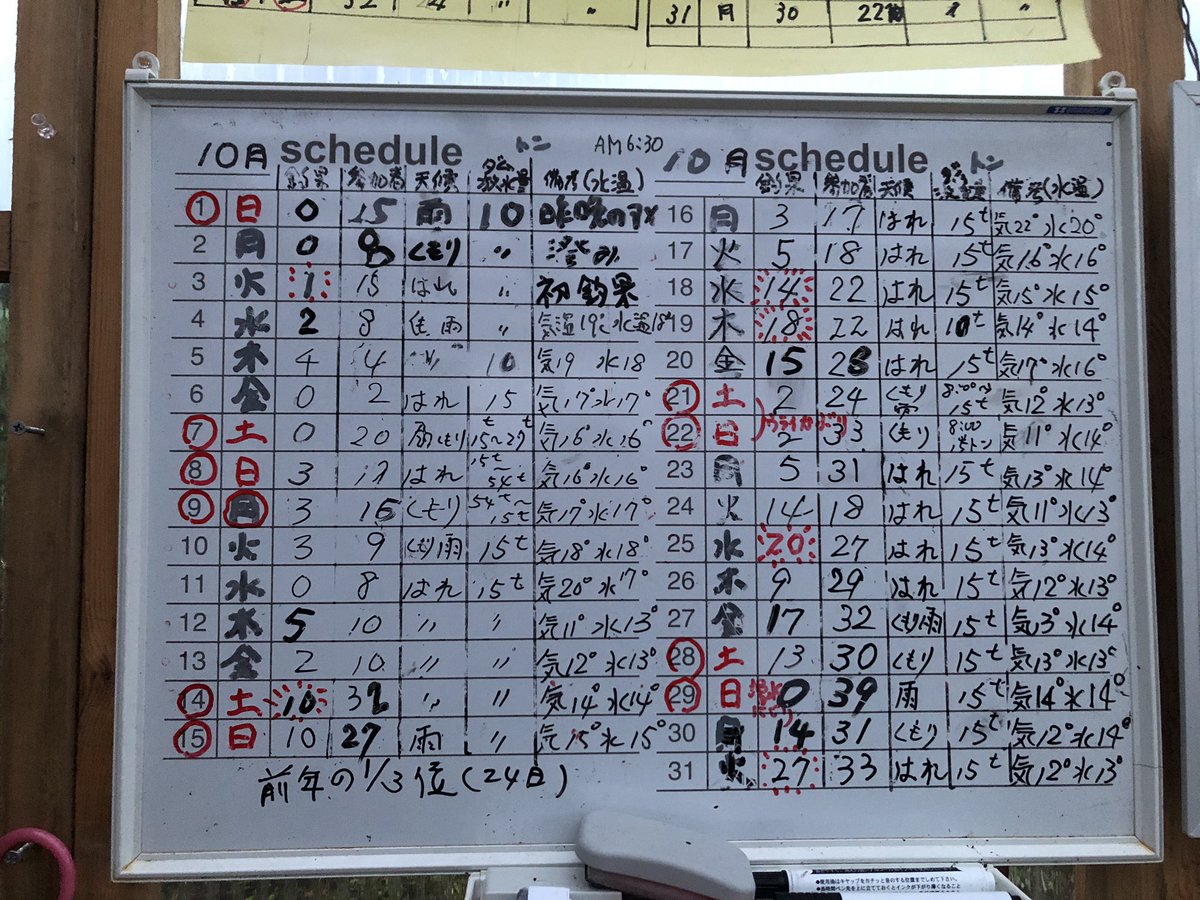 32 24 〃 〃
31 月 30 22 〃
10月 schedule トン AM6:30
釣果 参加者 天候 ダム放水量 備考(水温)
1 日 0 15 雨 10 昨晩のアメ
2 月 0 8 くもり 〃 澄み
3 火 1 15 はれ 〃 初釣果
4 水 2 8 雨 〃 気温19℃ 水温18°
5 木 4 14 〃 10 気19 水18
6 金 0 2 はれ 15 気17°水17°
7 土 0 20 雨くもり 15t〜27t 気16°水16°
8 日 3 17 はれ 15t〜54t 気16°水16°
9 月 3 16 くもり 54t〜15t 気17°水17°
10 火 3 9 くもり雨 15t 気18°水18°
11 水 0 8 はれ 15t 気20°水17°
12 木 5 10 〃 〃 気11°水13°
13 金 2 10 〃 〃 気12°水13°
14 土 10 32 〃 〃 気14°水14°
15 日 10 27 雨 〃 気15°水15°
前年の1/3位(24日)
10月 schedule トン
釣果 参加者 天候 備考(水温)
16 月 3 17 はれ 15t 気22°水20°
17 火 5 18 はれ 15t 気16°水16°
18 水 14 22 はれ 15t 気15°水15°
19 木 18 22 はれ 10t 気14°水14°
20 金 15 28 はれ 15t 気17°水16°
21 土 2 24 くもり雨 8:00〜15t 気12°水13°
ウライかぶり
22 日 2 33 くもり 8:00 15トン 気11°水14°
23 月 5 31 はれ 15t 気13°水14°
24 火 14 18 はれ 15t 気11°水13°
25 水 20 27 はれ 15t 気13°水14°
26 木 9 29 はれ 15t 気12°水13°
27 金 17 32 くもり雨 15t 気13°水14°
28 土 13 30 くもり 15t 気13°水13°
29 日 0 39 雨 15t 気14°水14°
30 月 14 31 くもり 15t 気12°水14°
31 火 27 33 はれ 15t 気12°水13°
●使用後はキャップをカチッと音のする位置までしめて下さい。
●長時間ペン先を上に立てておくとインクが薄くなること